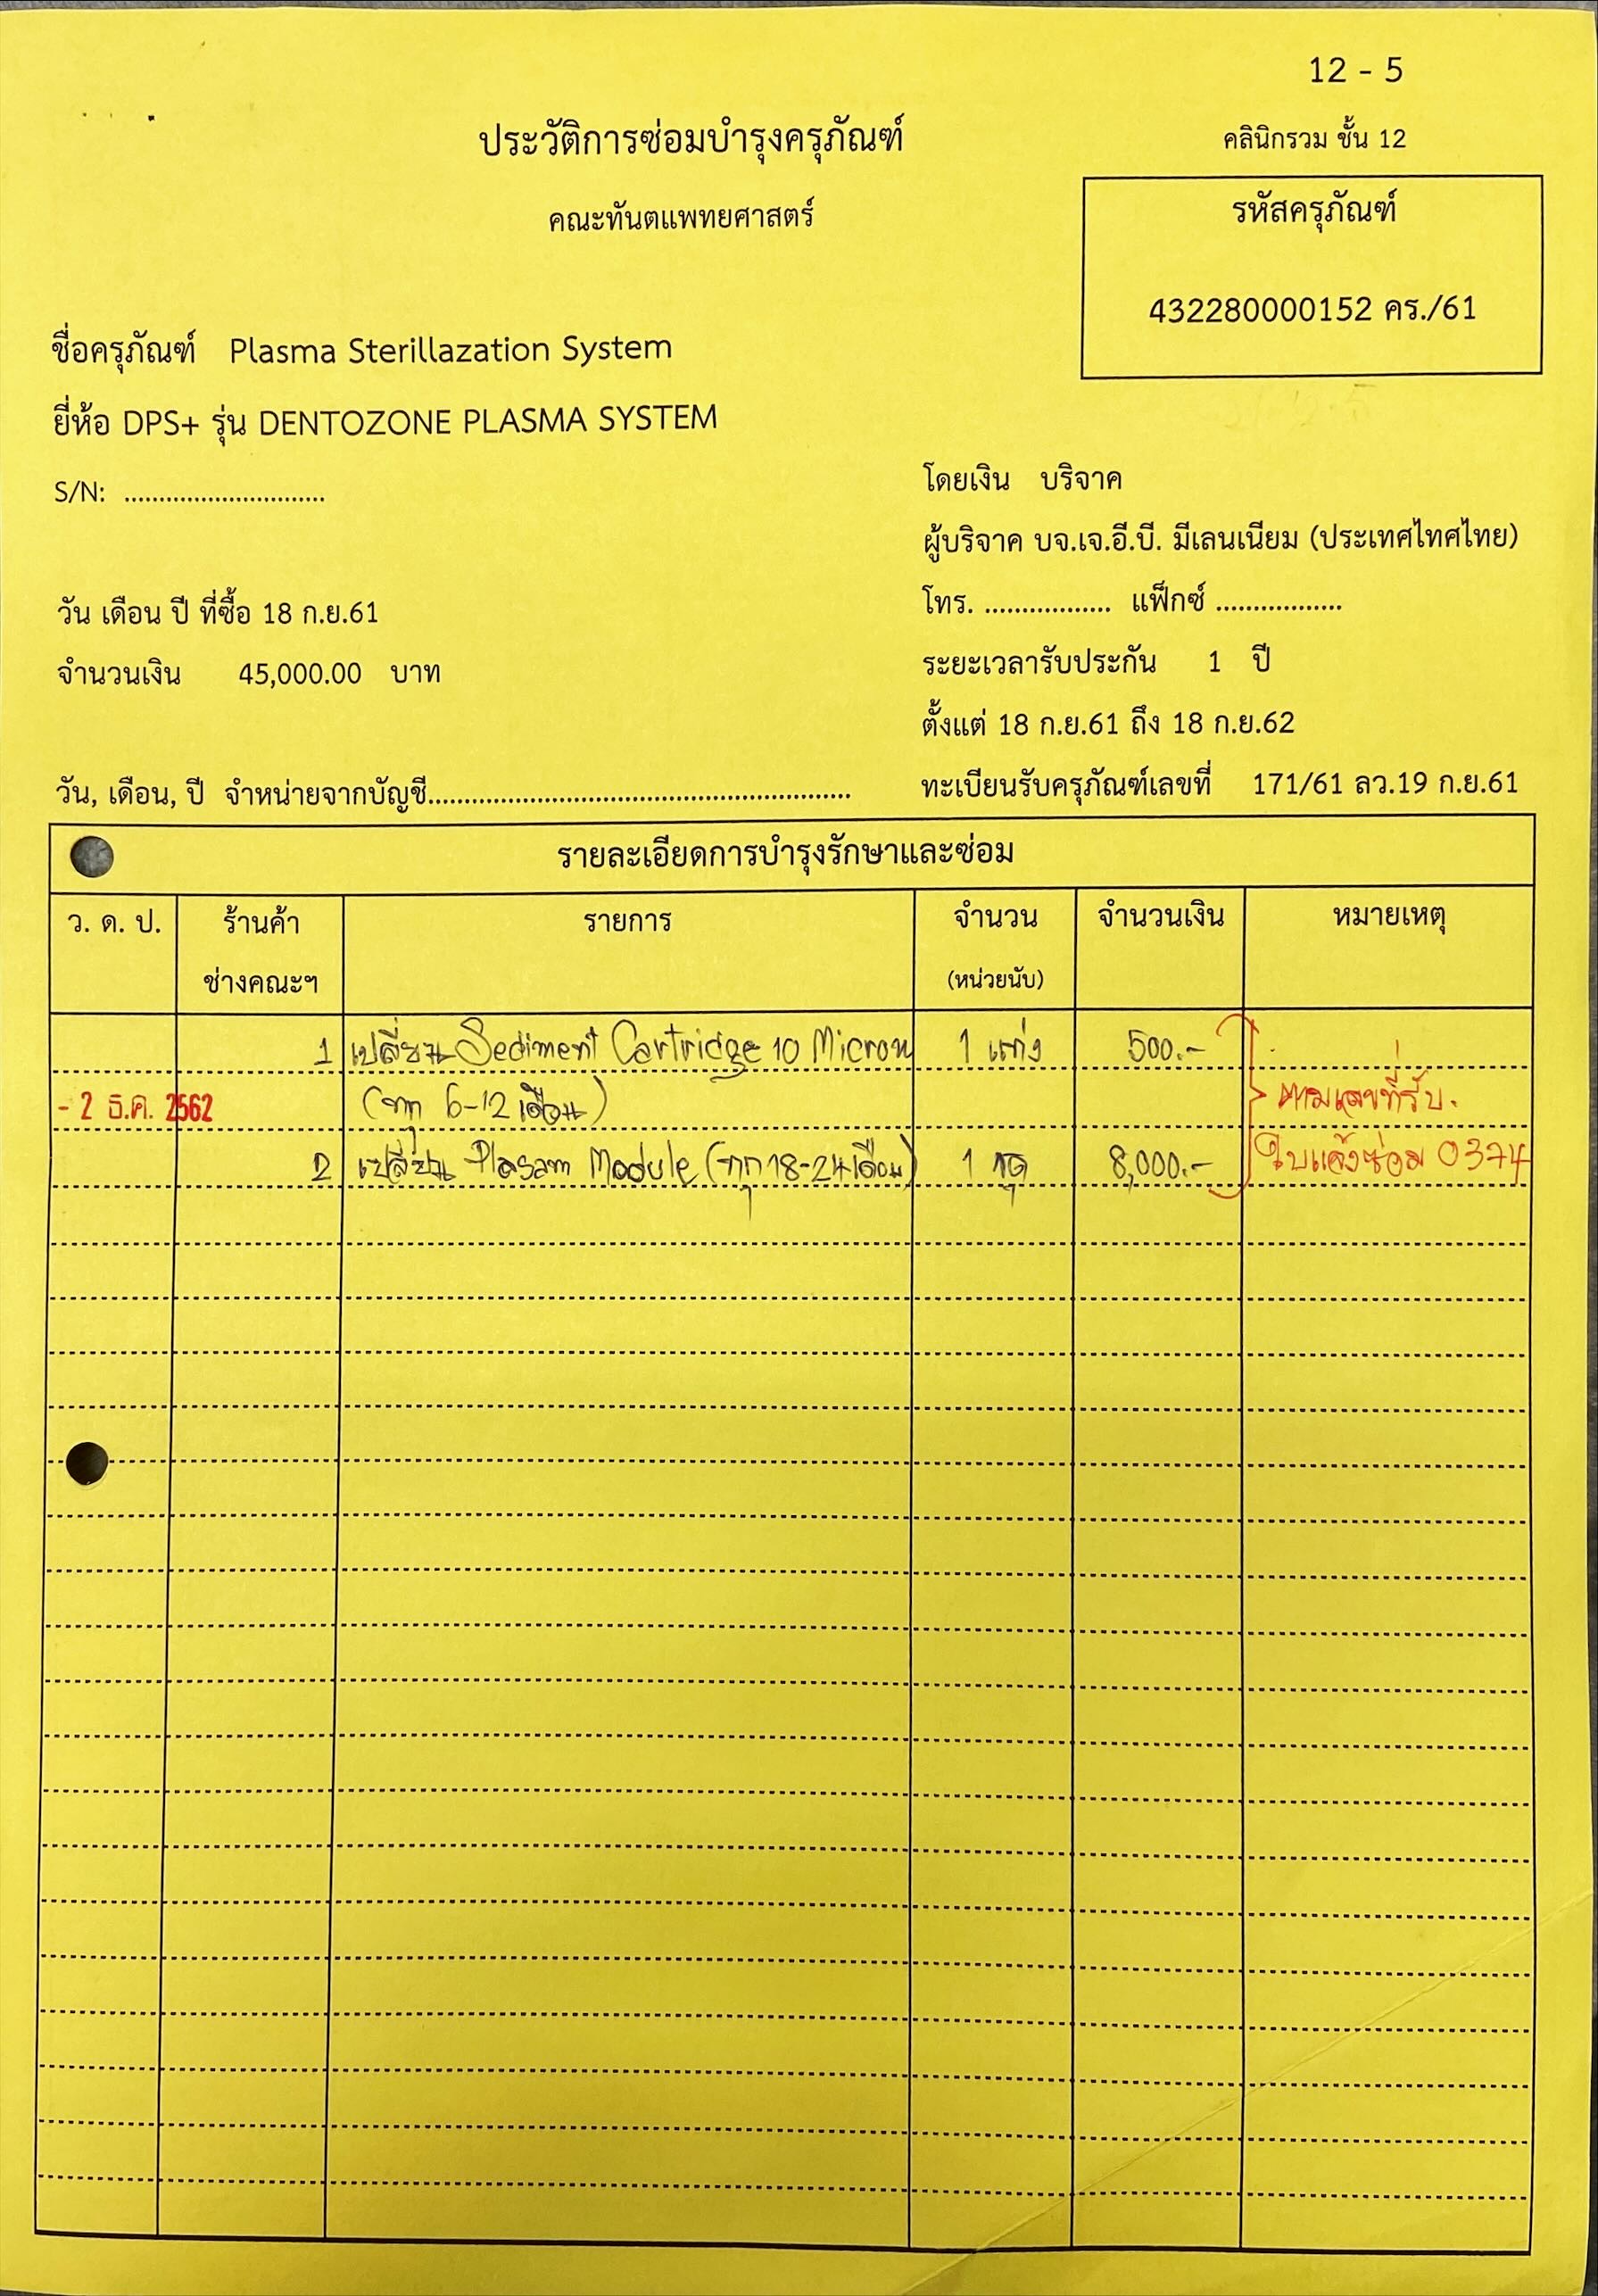 12 - 5
ประวัติการซ่อมบำรุงครุภัณฑ์
คลินิกรวม ชั้น 12
คณะทันตแพทยศาสตร์
รหัสครุภัณฑ์
432280000152 คร./61
ชื่อครุภัณฑ์ Plasma Sterillazation System
ยี่ห้อ DPS+ รุ่น DENTOZONE PLASMA SYSTEM
S/N: ............................
โดยเงิน บริจาค
ผู้บริจาค บจ.เจ.อี.บี. มีเลนเนียม (ประเทศไทศไทย)
โทร. .................. แฟ็กซ์ ..................
วัน เดือน ปี ที่ซื้อ 18 ก.ย.61
จำนวนเงิน 45,000.00 บาท
ระยะเวลารับประกัน 1 ปี
ตั้งแต่ 18 ก.ย.61 ถึง 18 ก.ย.62
วัน, เดือน, ปี จำหน่ายจากบัญชี............................................................
ทะเบียนรับครุภัณฑ์เลขที่ 171/61 ลว.19 ก.ย.61
รายละเอียดการบำรุงรักษาและซ่อม
ว. ด. ป. ร้านค้า รายการ จำนวน จำนวนเงิน หมายเหตุ
ช่างคณะฯ (หน่วยนับ)
1 เปลี่ยน Sediment Cartridge 10 Micron 1 แท่ง 500.-
- 2 ธ.ค. 2562 (ทุก 6-12 เดือน) ตามเลขที่รับ.
2 เปลี่ยน Plasam Module (ทุก 18-24 เดือน) 1 ชุด 8,000.- ใบแจ้งซ่อม 0374